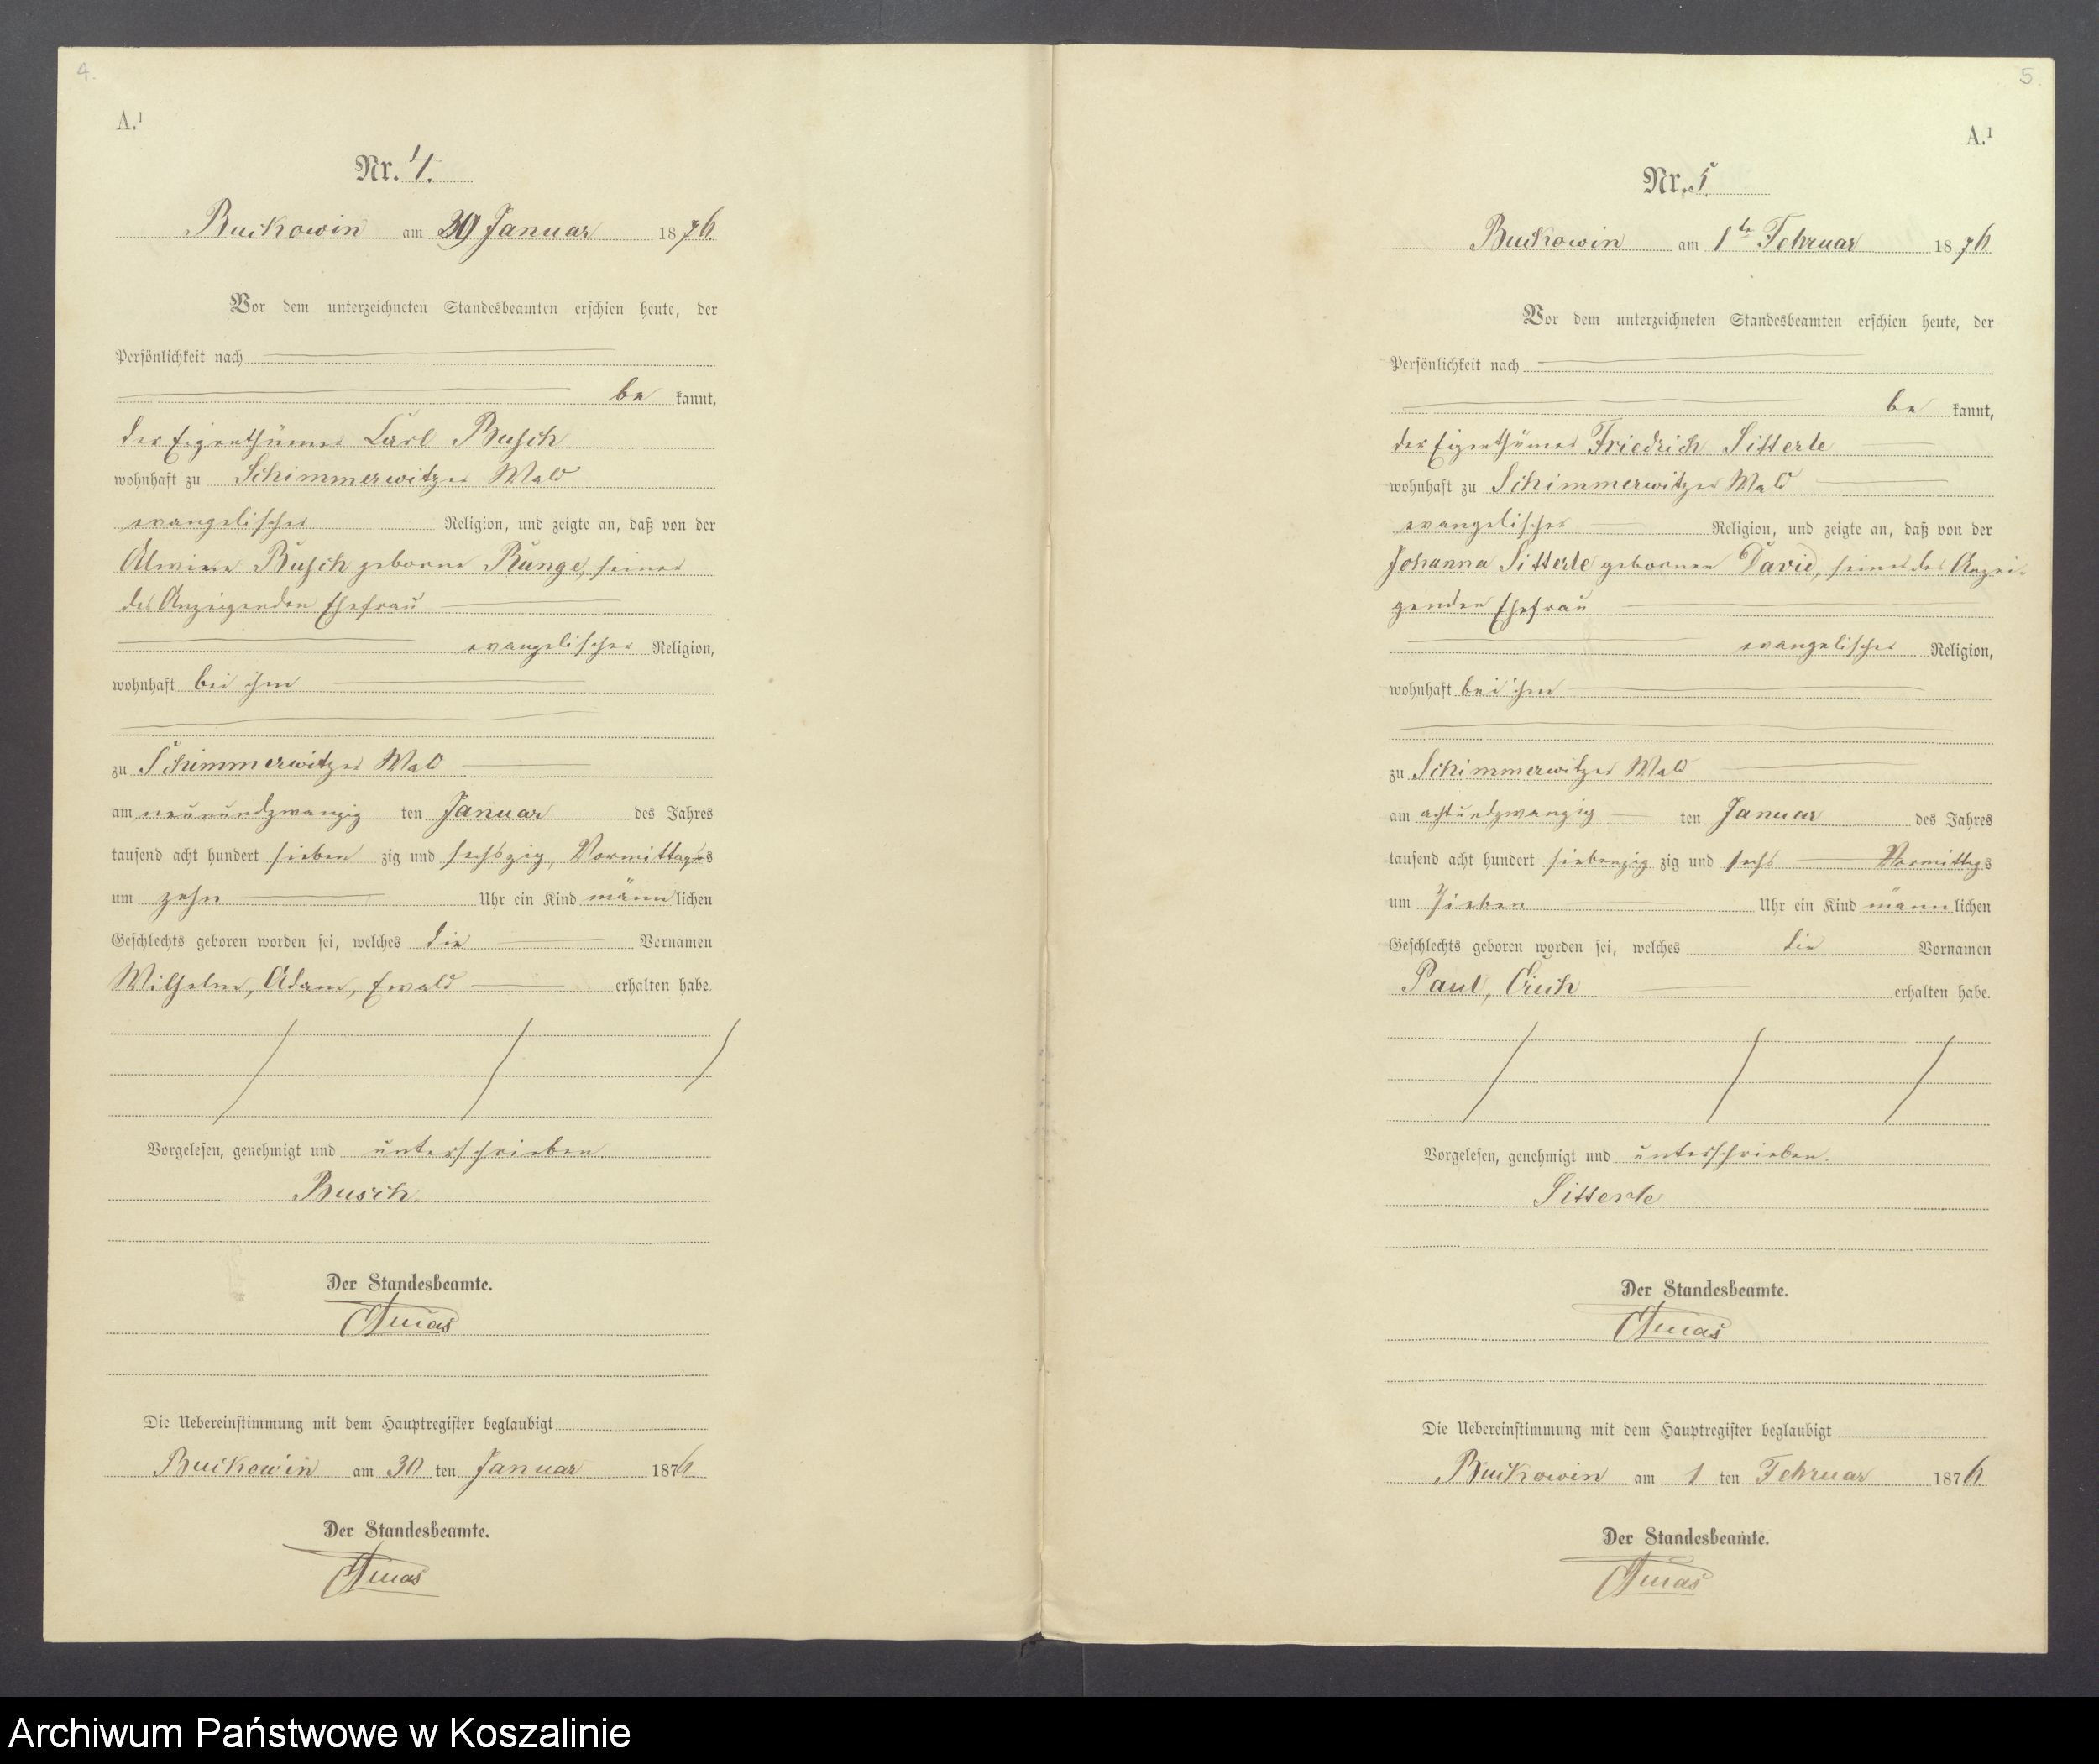 4.
A.¹
Nr. 4.
Buckowin am 30 Januar 1876.
Vor dem unterzeichneten Standesbeamten erschien heute, der
Persönlichkeit nach
be kannt,
der Eigenthümer Carl Busch
wohnhaft zu Schimmerwitzer Wald
evangelischer Religion, und zeigte an, daß von der
Alwine Busch geborne Runge, seiner
des Anzeigenden Ehefrau
evangelischer Religion,
wohnhaft bei ihm
zu Schimmerwitzer Wald
am neunundzwanzig ten Januar des Jahres
tausend acht hundert sieben zig und sechszig, Vormittags
um zehn Uhr ein Kind männlichen
Geschlechts geboren worden sei, welches die Vornamen
Wilhelm, Adam, Ewald erhalten habe.
Vorgelesen, genehmigt und unterschrieben.
Busch.
Der Standesbeamte.
Die Uebereinstimmung mit dem Hauptregister beglaubigt
Buckowin am 30 ten Januar 1876
Der Standesbeamte.
5.
A.¹
Nr. 5.
Buckowin am 1te Februar 1876
Vor dem unterzeichneten Standesbeamten erschien heute, der
Persönlichkeit nach
be kannt,
der Eigenthümer Friedrich Sitterle
wohnhaft zu Schimmerwitzer Wald
evangelischer Religion, und zeigte an, daß von der
Johanna Sitterle gebornen David, seiner des Anzei-
genden Ehefrau
evangelischer Religion,
wohnhaft bei ihm
zu Schimmerwitzer Wald
am achtundzwanzig ten Januar des Jahres
tausend acht hundert siebenzig zig und sechs Vormittags
um Sieben Uhr ein Kind männlichen
Geschlechts geboren worden sei, welches die Vornamen
Paul, Erich erhalten habe.
Vorgelesen, genehmigt und unterschrieben.
Sitterle
Der Standesbeamte.
Die Uebereinstimmung mit dem Hauptregister beglaubigt
Buckowin am 1 ten Februar 1876.
Der Standesbeamte.
Archiwum Państwowe w Koszalinie